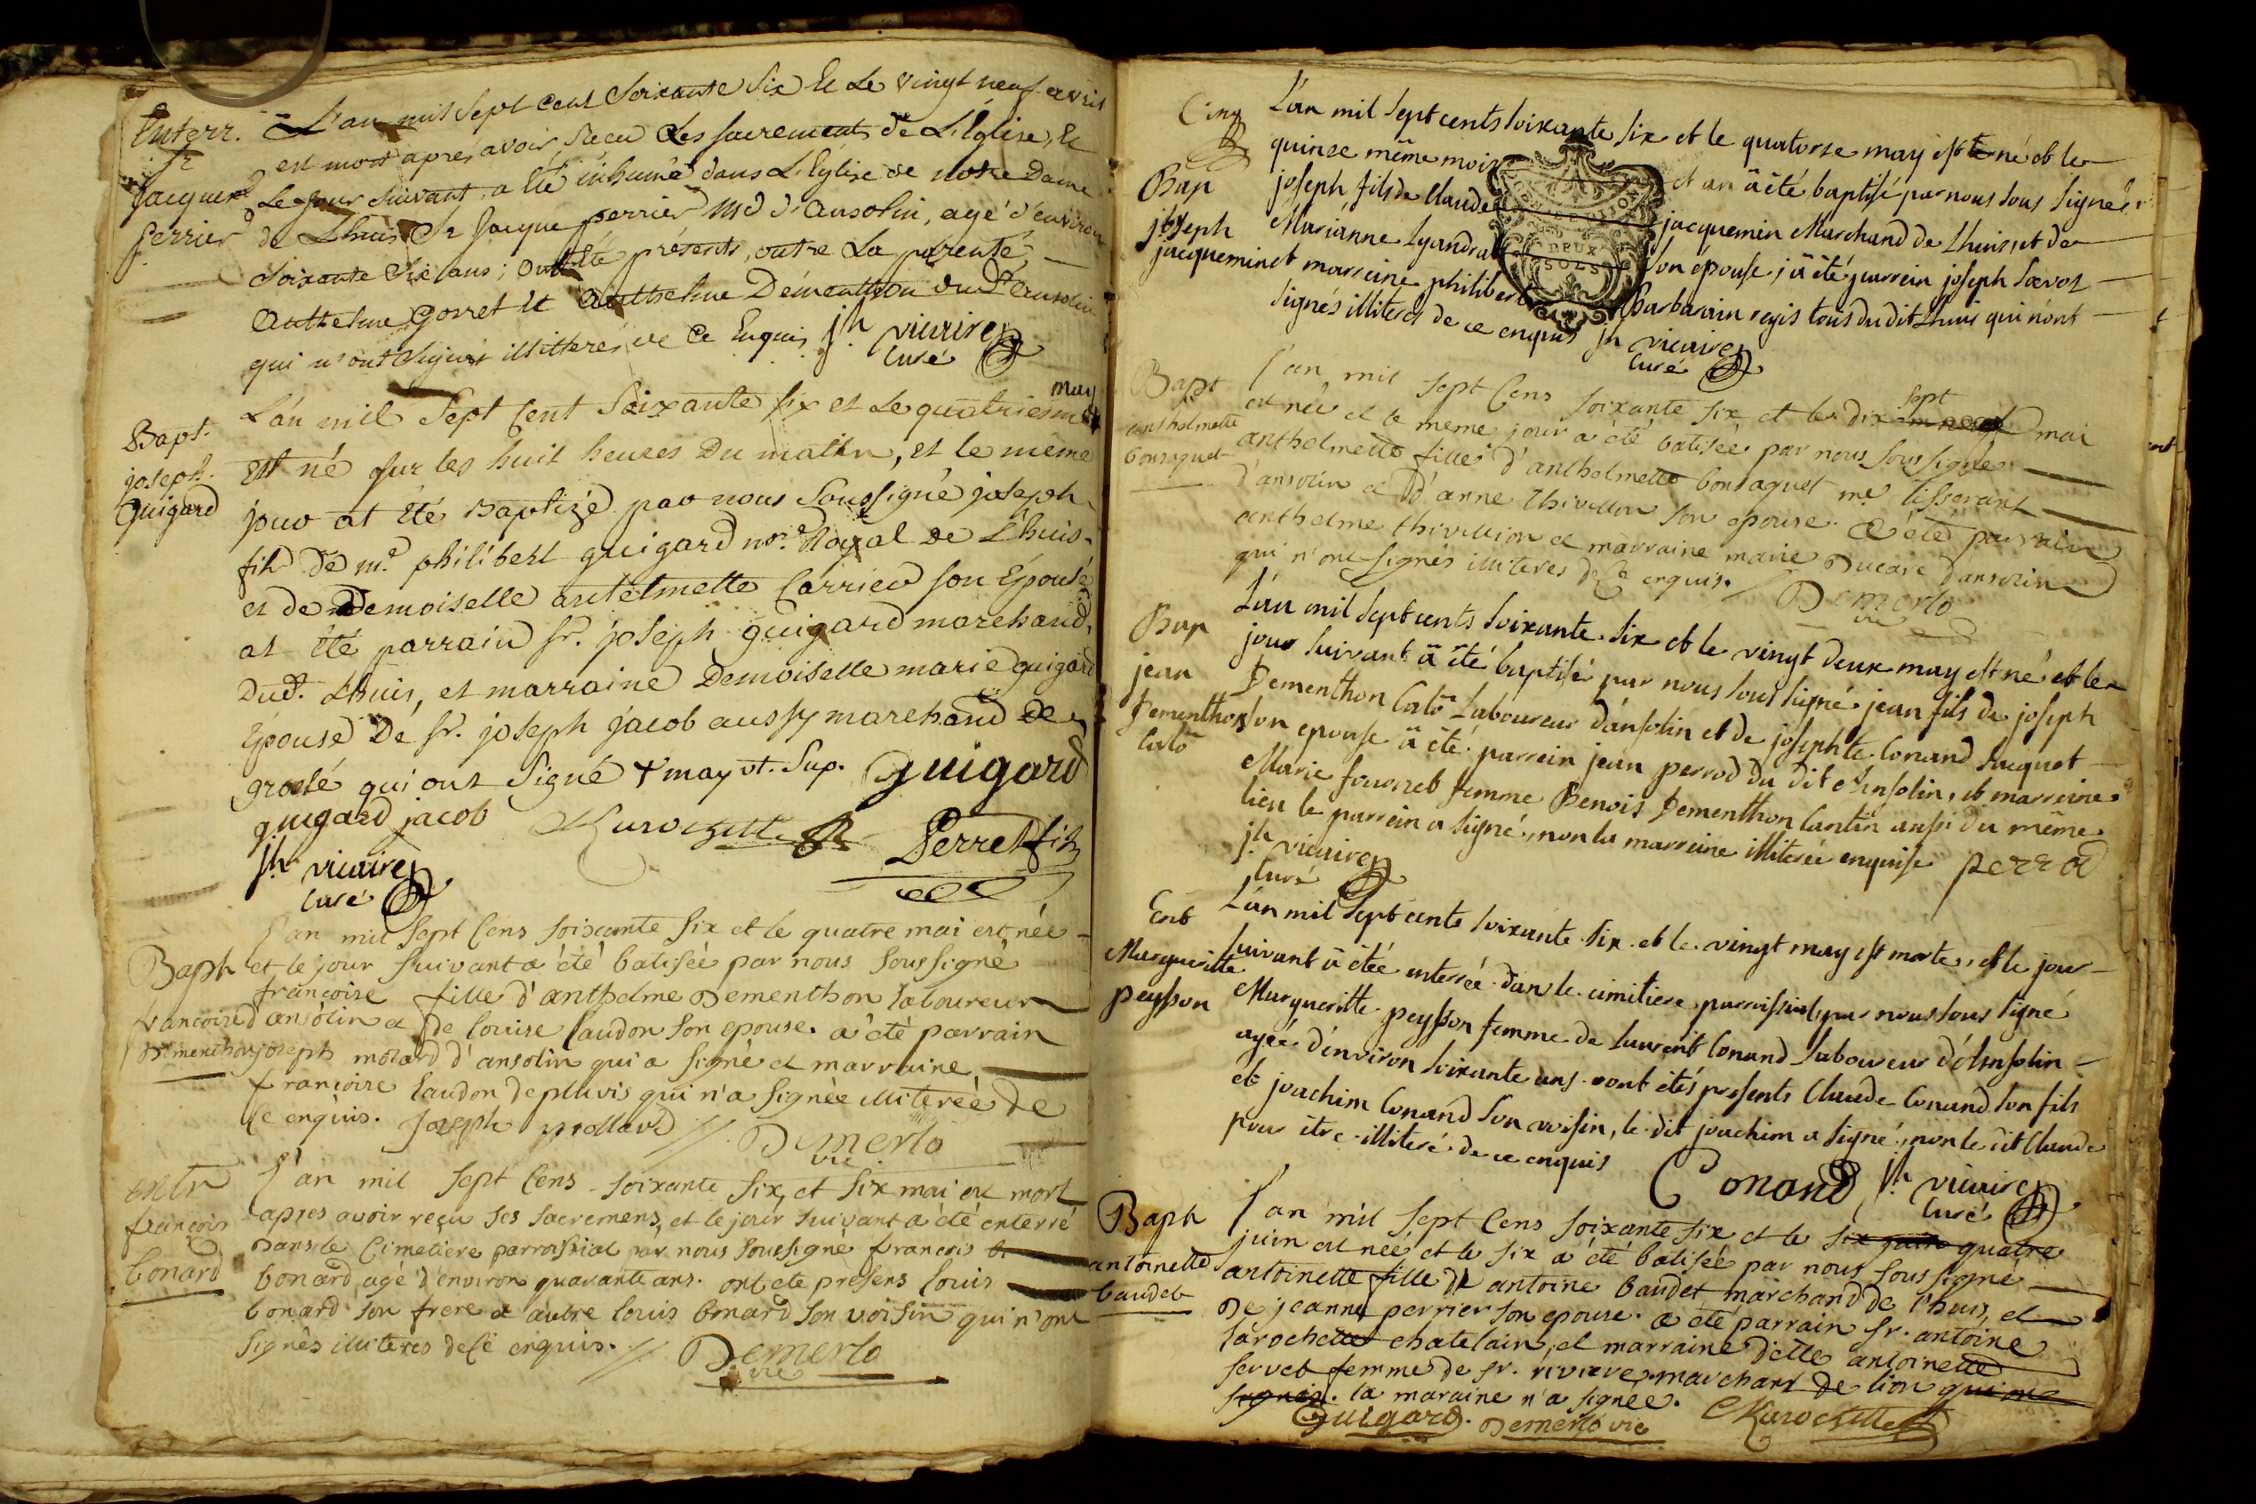 Enterr.
Sr
Jacques
perrier
L'an mil Sept Cent Soixante Six Et Le vingt neuf avril
est mort après avoir Receu Les Sacrements de L'Église, Et
Le jour suivant a Eté inhumé dans L'Eglise de notre Dame
de Lhuis Sr Jacque perrier Md d'ansolin, agé d'environ
Soixante Six ans; ont Eté présents, outre La parenté
Anthelme Gorret Et Anthelme Dementhon dud. ansolin
qui n'ont signé illitterés de Ce Enquis jh vicaire
Curé
Bapt.
joseph
Guigard
L'an mil Sept Cent Soixante six et Le quatriesme may
Est né sur les huit heures Du matin, et le même
jour at été Baptizé par nous Soussigné joseph
fils De me philibert guigard nore Royal de Lhuis
et de Demoiselle antelmette Carrier son Épouse
at été parrain sr. joseph guigard marchand
Dud. Lhuis, et marraine Demoiselle marie guigard
Épouse De sr. joseph jacob aussy marchand De
groslé qui ont Signé + may vt. Sup. Guigard
guigard jacob
Perret fils
jh vicaire
Curé
Baph
francoise
Dementhon
L'an mil Sept Cens soixante six et le quatre mai est née
et le jour suivant a été batisée par nous soussigné
françoise fille d'anthelme Dementhon laboureur
d'ansolin et de louise laudon son epouse. a été parrain
joseph molard d'ansolin qui a signé et marraine
françoise laudon de pluvis qui n'a signée illiterée de
ce enquis. Joseph mollard // Demerlo
vic
entr
françois
bonard
L'an mil Sept Cens soixante six, et six mai est mort
apres avoir reçu ses sacremens, et le jour suivant a été enterré
Dans le Cimetiere parroissial par nous soussigné françois
bonard, agé d'environ quarante ans. ont ete presens louis
bonard son frere et autre louis bonard son voisin qui n'ont
signés illiteres de ce enquis. // Demerlo
vic
Cinq
Bap
joseph
jacqueminet
L'an mil sept cents soixante six et le quatorze may est né et le
quinze même mois et an a été baptisé par nous sous signé
joseph, fils de Claude jacquemin Marchand de Lhuis, et de
Marianne Lyandrat son épouse; a été parrein joseph
et marreine philiberte Barbarain regis tous du dit Lhuis qui n'ont
signés illiteres de ce enquis jh vicaire
Curé
DEUX
SOLS
Bapt
anthelmette
bonaquet
L'an mil sept Cens soixante six et le dix sept mai
est née et le meme jour a été batisée par nous soussigné
anthelmette fille d'anthelmette bonaquet me tisserant
d'ansolin et d'anne thivillon son epouse. a été parrain
anthelme thivillion et marraine marie Ducare d'ansolin
qui n'ont signés illiteres de Ce enquis. // Demerlo
vic
Bap
jean
Dementhon
Cato
L'an mil sept cents soixante six et le vingt deux may est né et le
jour suivant a été baptisé par nous sous signé jean fils de joseph
Dementhon Cato Laboureur d'ansolin et de josephte Conand Jacquet
son epouse a été parrein jean perrod du dit Ansolin, et marreine
Marie fournet femme Benois Dementhon Cantin aussi du même
lieu le parrein a signé, non la marreine illiterée enquise perrod
jh vicaire
Curé
Ent
Margueritte
peysson
L'an mil sept cents soixante six et le vingt may est morte, et le jour
suivant a étée enterrée dans le cimitiere parroissial, par nous sous signé
Margueritte peysson femme de Laurent Conand Laboureur d'Ansolin
agée d'environ soixante ans. ont étés presents Claude Conand son fils
et joachim Conand son voisin, le dit joachim a signé, non le dit Claude
pour être illiteré de ce enquis Conand jh vicaire
Curé
Baph
antoinette
baudet
L'an mil sept Cens soixante six et le six juin quatre
juin est née et le six a été batisée par nous sous signé
antoinette fille de antoine baudet marchand de l'huis, et
De jeanne perrier son epouse. a été parrain sr. antoine
larochette chatelain, et marraine d'elle antoinette
servet femme de sr. riviere marchant de lion qui ont
signés. la maraine n'a signée.
Guigard. Demerlo vic